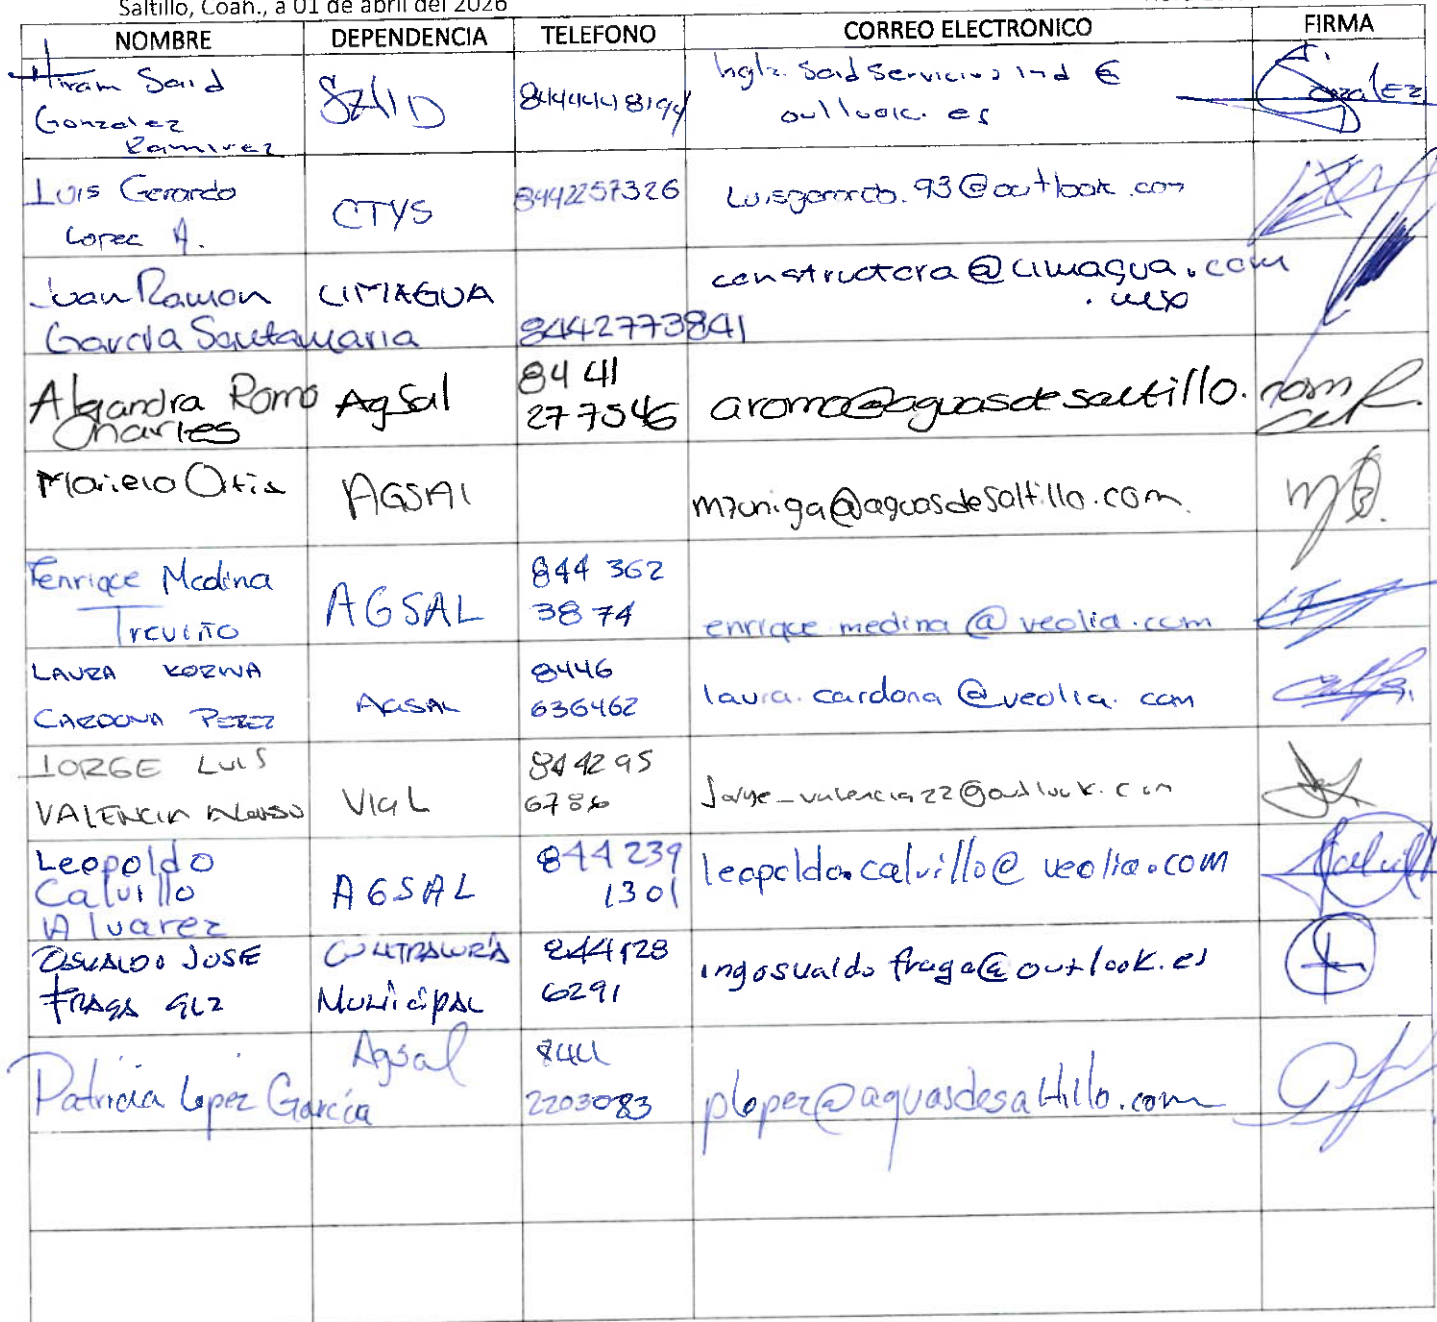 Saltillo, Coah., a 01 de abril del 2026
NOMBRE DEPENDENCIA TELEFONO CORREO ELECTRONICO FIRMA
Hiram Said
Gonzalez
Ramirez
Said Servicios Ind
outlook.es
Luis Gerardo
Lopez A.
CTYS
8442257326
luisgerardo.93@outlook.com
Juan Ramon
García Santamaria
CIMAGUA
8442773841
constructora@cimagua.com
.mx
Alejandra Romo
Charles
AgSal
84 41
277546
aromo@aguasdesaltillo.com
Mariela Ortiz
AGSAl
mzuniga@aguasdesaltillo.com.
Enrique Medina
Treviño
AGSAL
844 362
3874
enrique.medina@veolia.com
LAURA KORINA
CARDONA PEREZ
AGSAL
8446
636462
laura.cardona@veolia.com
JORGE LUIS
VALENCIA Alonso
VIGL
844295
6786
Jorge_valencia22@outlook.com
Leopoldo
Calvillo
Alvarez
AGSAL
844 239
1301
leopoldo.calvillo@veolia.com
OSVALDO JOSE
FRAGA GLZ
CONTRALORÍA
MUNICIPAL
844128
6291
ingosvaldofraga@outlook.es
Patricia Lopez García
Agsal
844
2203083
plopez@aguasdesaltillo.com